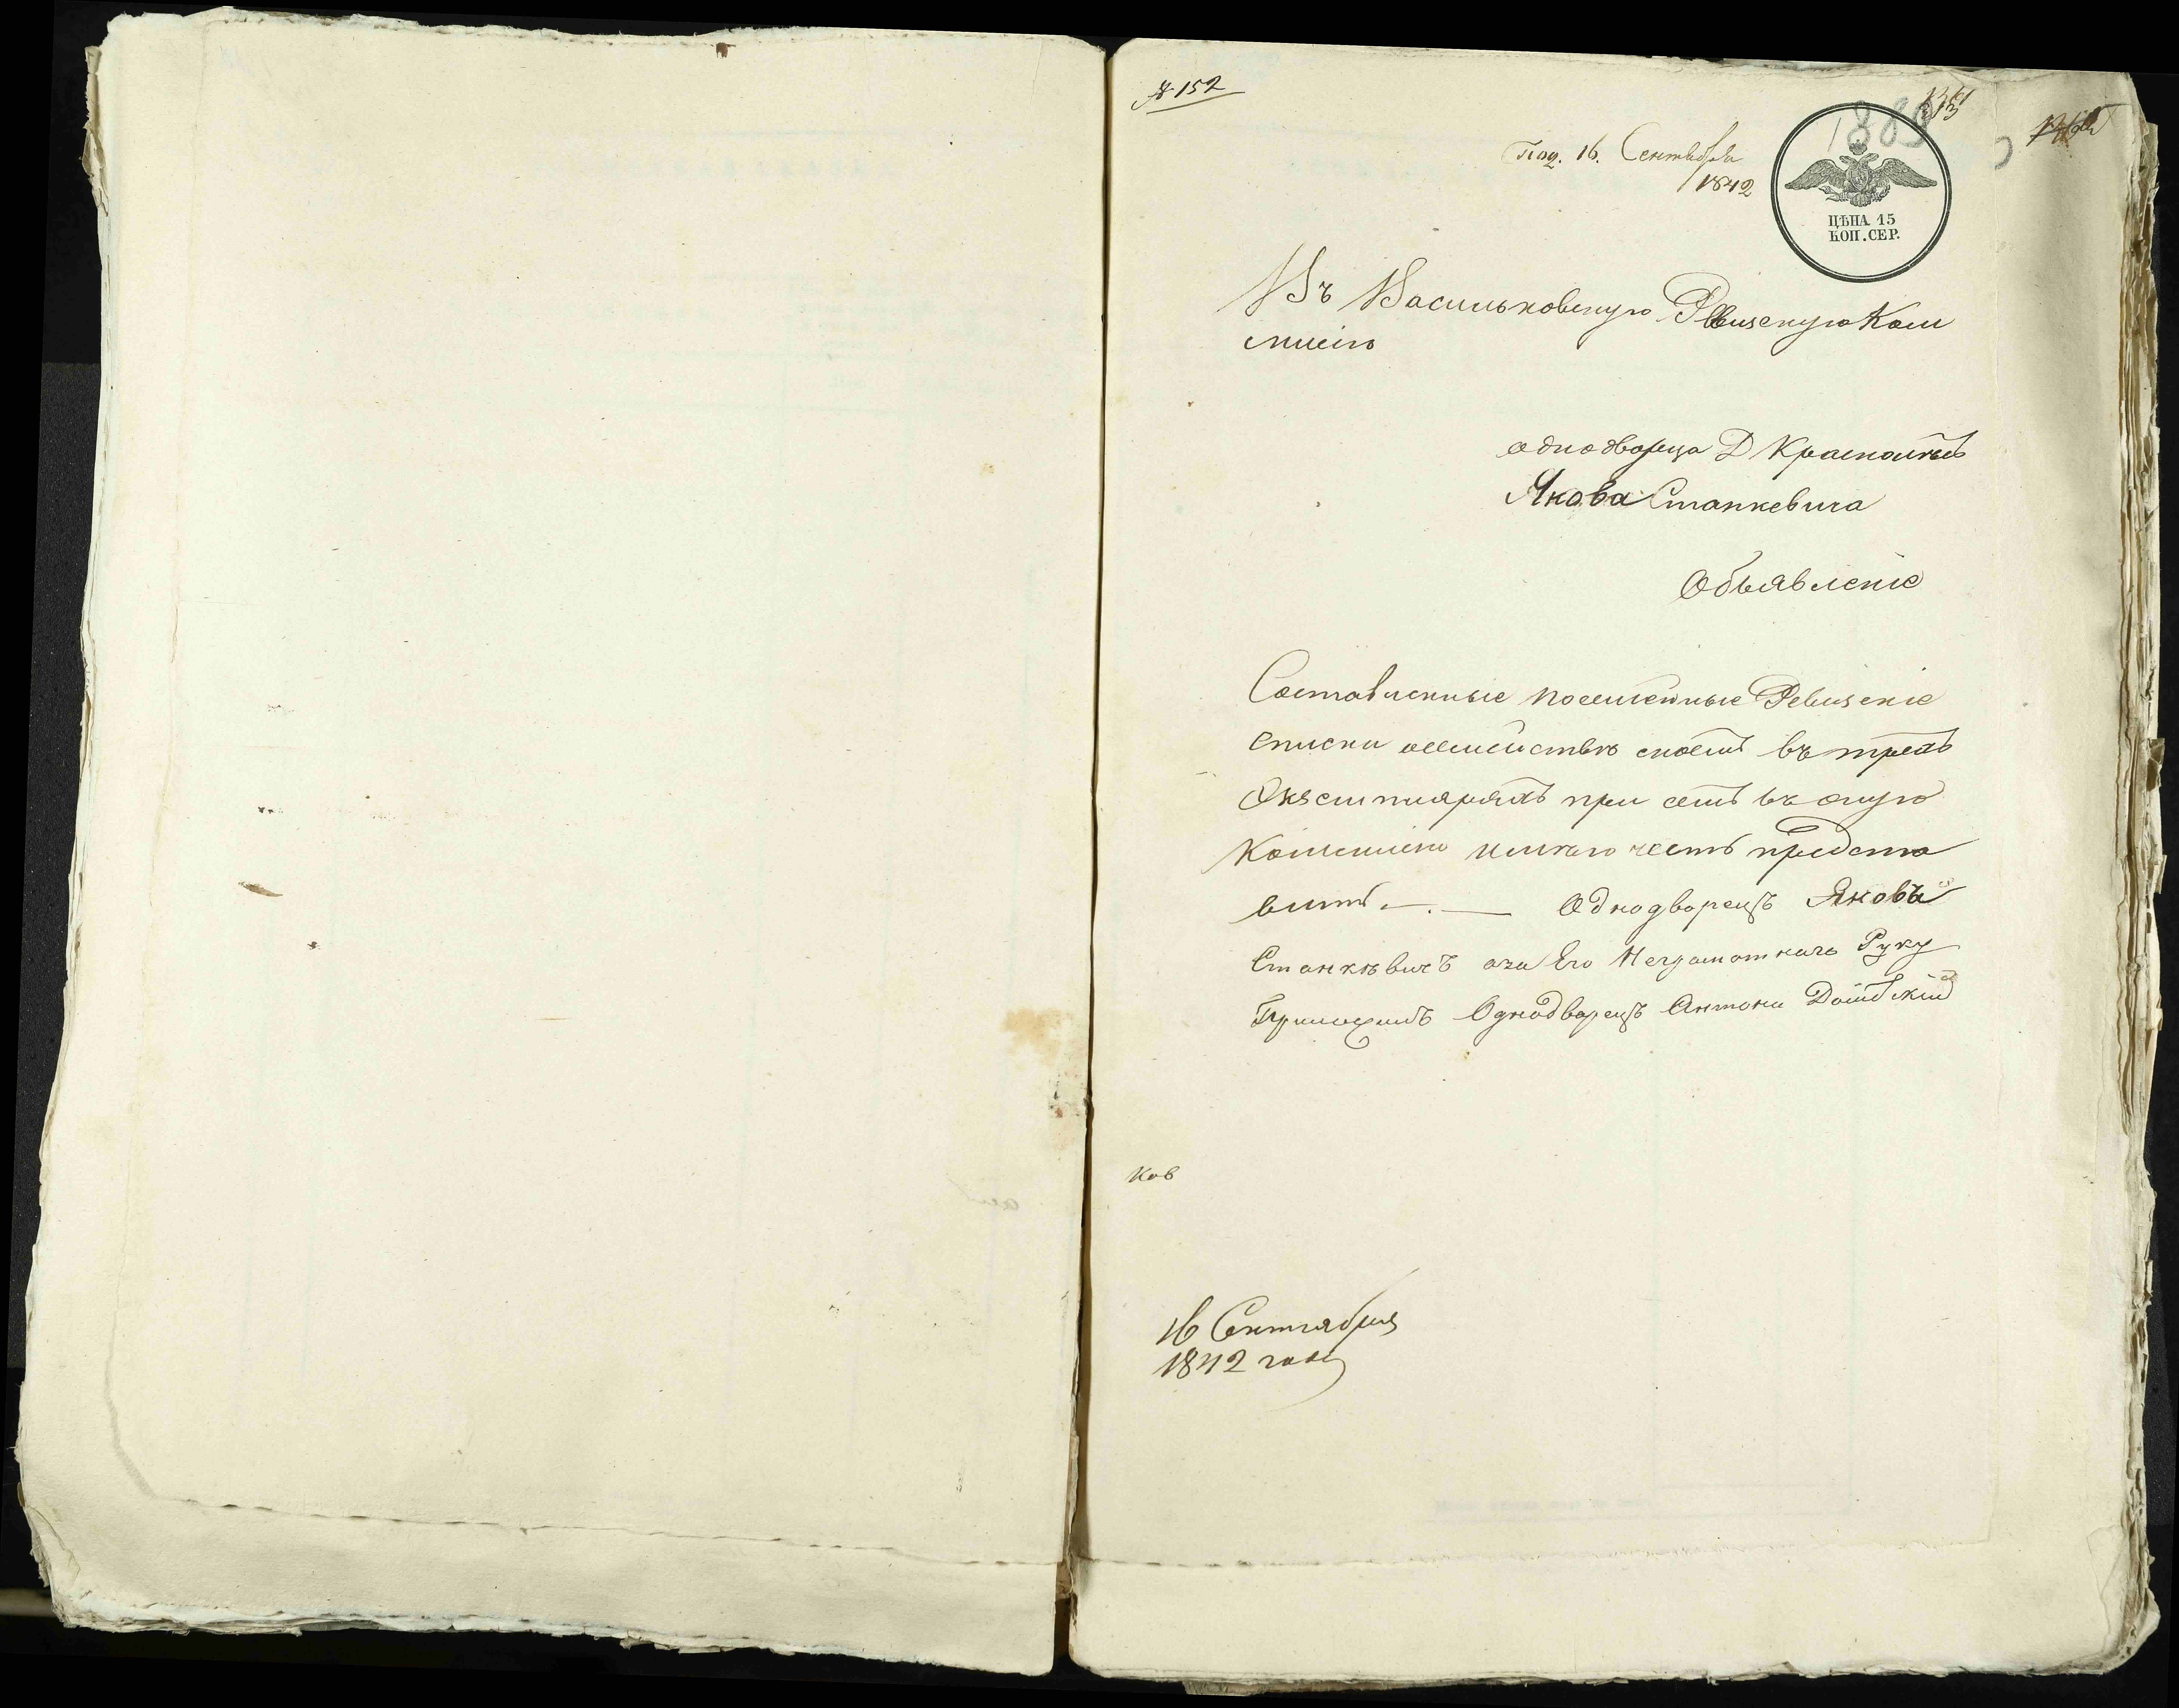 № 152
Под. 16. Сентября
1842
1889
ЦѢНА 15
КОП. СЕР.
Въ Васильковскую Ревизскую Ком
мисію
однодворца Д
Якова Станкевича
Объявленіе
Составленные посемейные Ревизскіе
списки о семействѣ моемъ въ трехъ
Экземплярахъ при семъ въ оную
Коммисію имѣю честь предста
вить —.— Однодворецъ Яковъ
Станкѣвичъ аза Его Неграмотнаго Руку
Приложилъ Однодворецъ Антони
ков
16 Сентября
1842 года